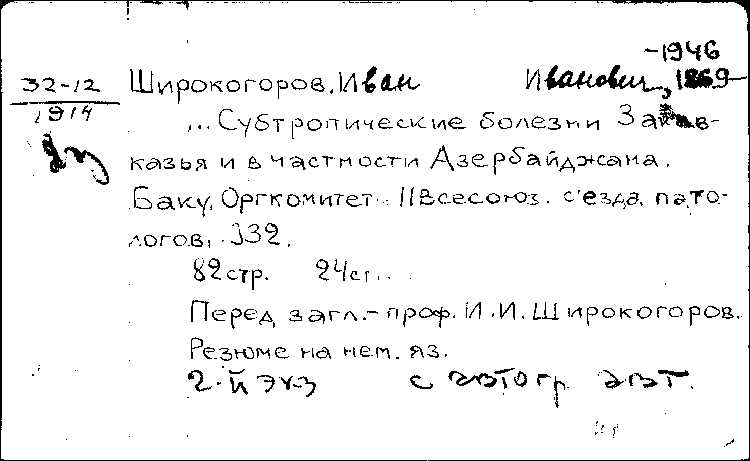 -1946
32-12 Широкогоров, Иван Иванович, 1869-
1914 ... Субтропические болезни Закав-
казья и в частности Азербайджана.
Баку, Оргкомитет II Всесоюз. с'езда пато-
логов, 932.
82 стр. 24 см...
Перед загл.- проф. И.И. Широкогоров.
Резюме на нем. яз.
2-й экз с автогр авт.